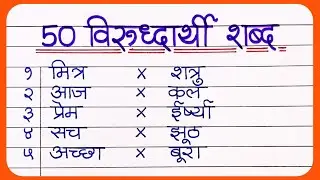 50 विरुध्दार्थी शब्द
१ मित्र × शत्रु
२ आज × कल
३ प्रेम × ईर्ष्या
४ सच × झूठ
५ अच्छा × बूरा